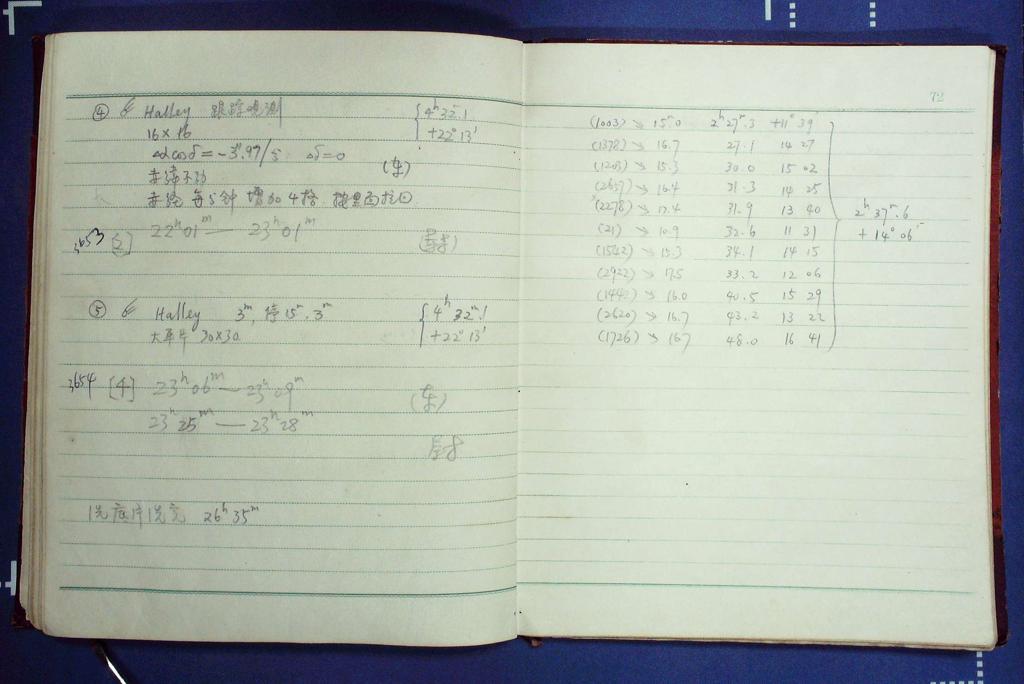 ④ ☄ Halley 跟踪观测 { 4ʰ 32ᵐ.1
16×16 +22° 13'
Δαcosδ = -3".97/分 Δδ=0 (东)
赤纬不动
赤经 每5分钟 增加4格
3653 [2] 22ʰ01ᵐ — 23ʰ01ᵐ
⑤ ☄ Halley 3ᵐ, 停15ᵐ. 3ᵐ { 4ʰ 32ᵐ.1
大底片 30×30 +22° 13'
3654 [4] 23ʰ06ᵐ — 23ʰ09ᵐ (东)
23ʰ25ᵐ — 23ʰ28ᵐ
洗底片洗完 26ʰ35ᵐ
72
(1003) ↘ 15ᵐ.0 2ʰ27ᵐ.3 +11° 39
(1378) ↘ 16.7 27.1 14 27
(1203) ↘ 15.3 30.0 15 02
(2657) ↘ 16.4 31.3 14 25
(2278) ↘ 17.4 31.9 13 40
(21) ↘ 10.9 32.6 11 31
(1542) ↘ 15.3 34.1 14 15
(2922) ↘ 17.5 33.2 12 06
(1442) ↘ 16.0 40.5 15 29
(2620) ↘ 16.7 43.2 13 22
(1726) ↘ 16.7 48.0 16 41
2ʰ 37ᵐ.6
+14° 06'